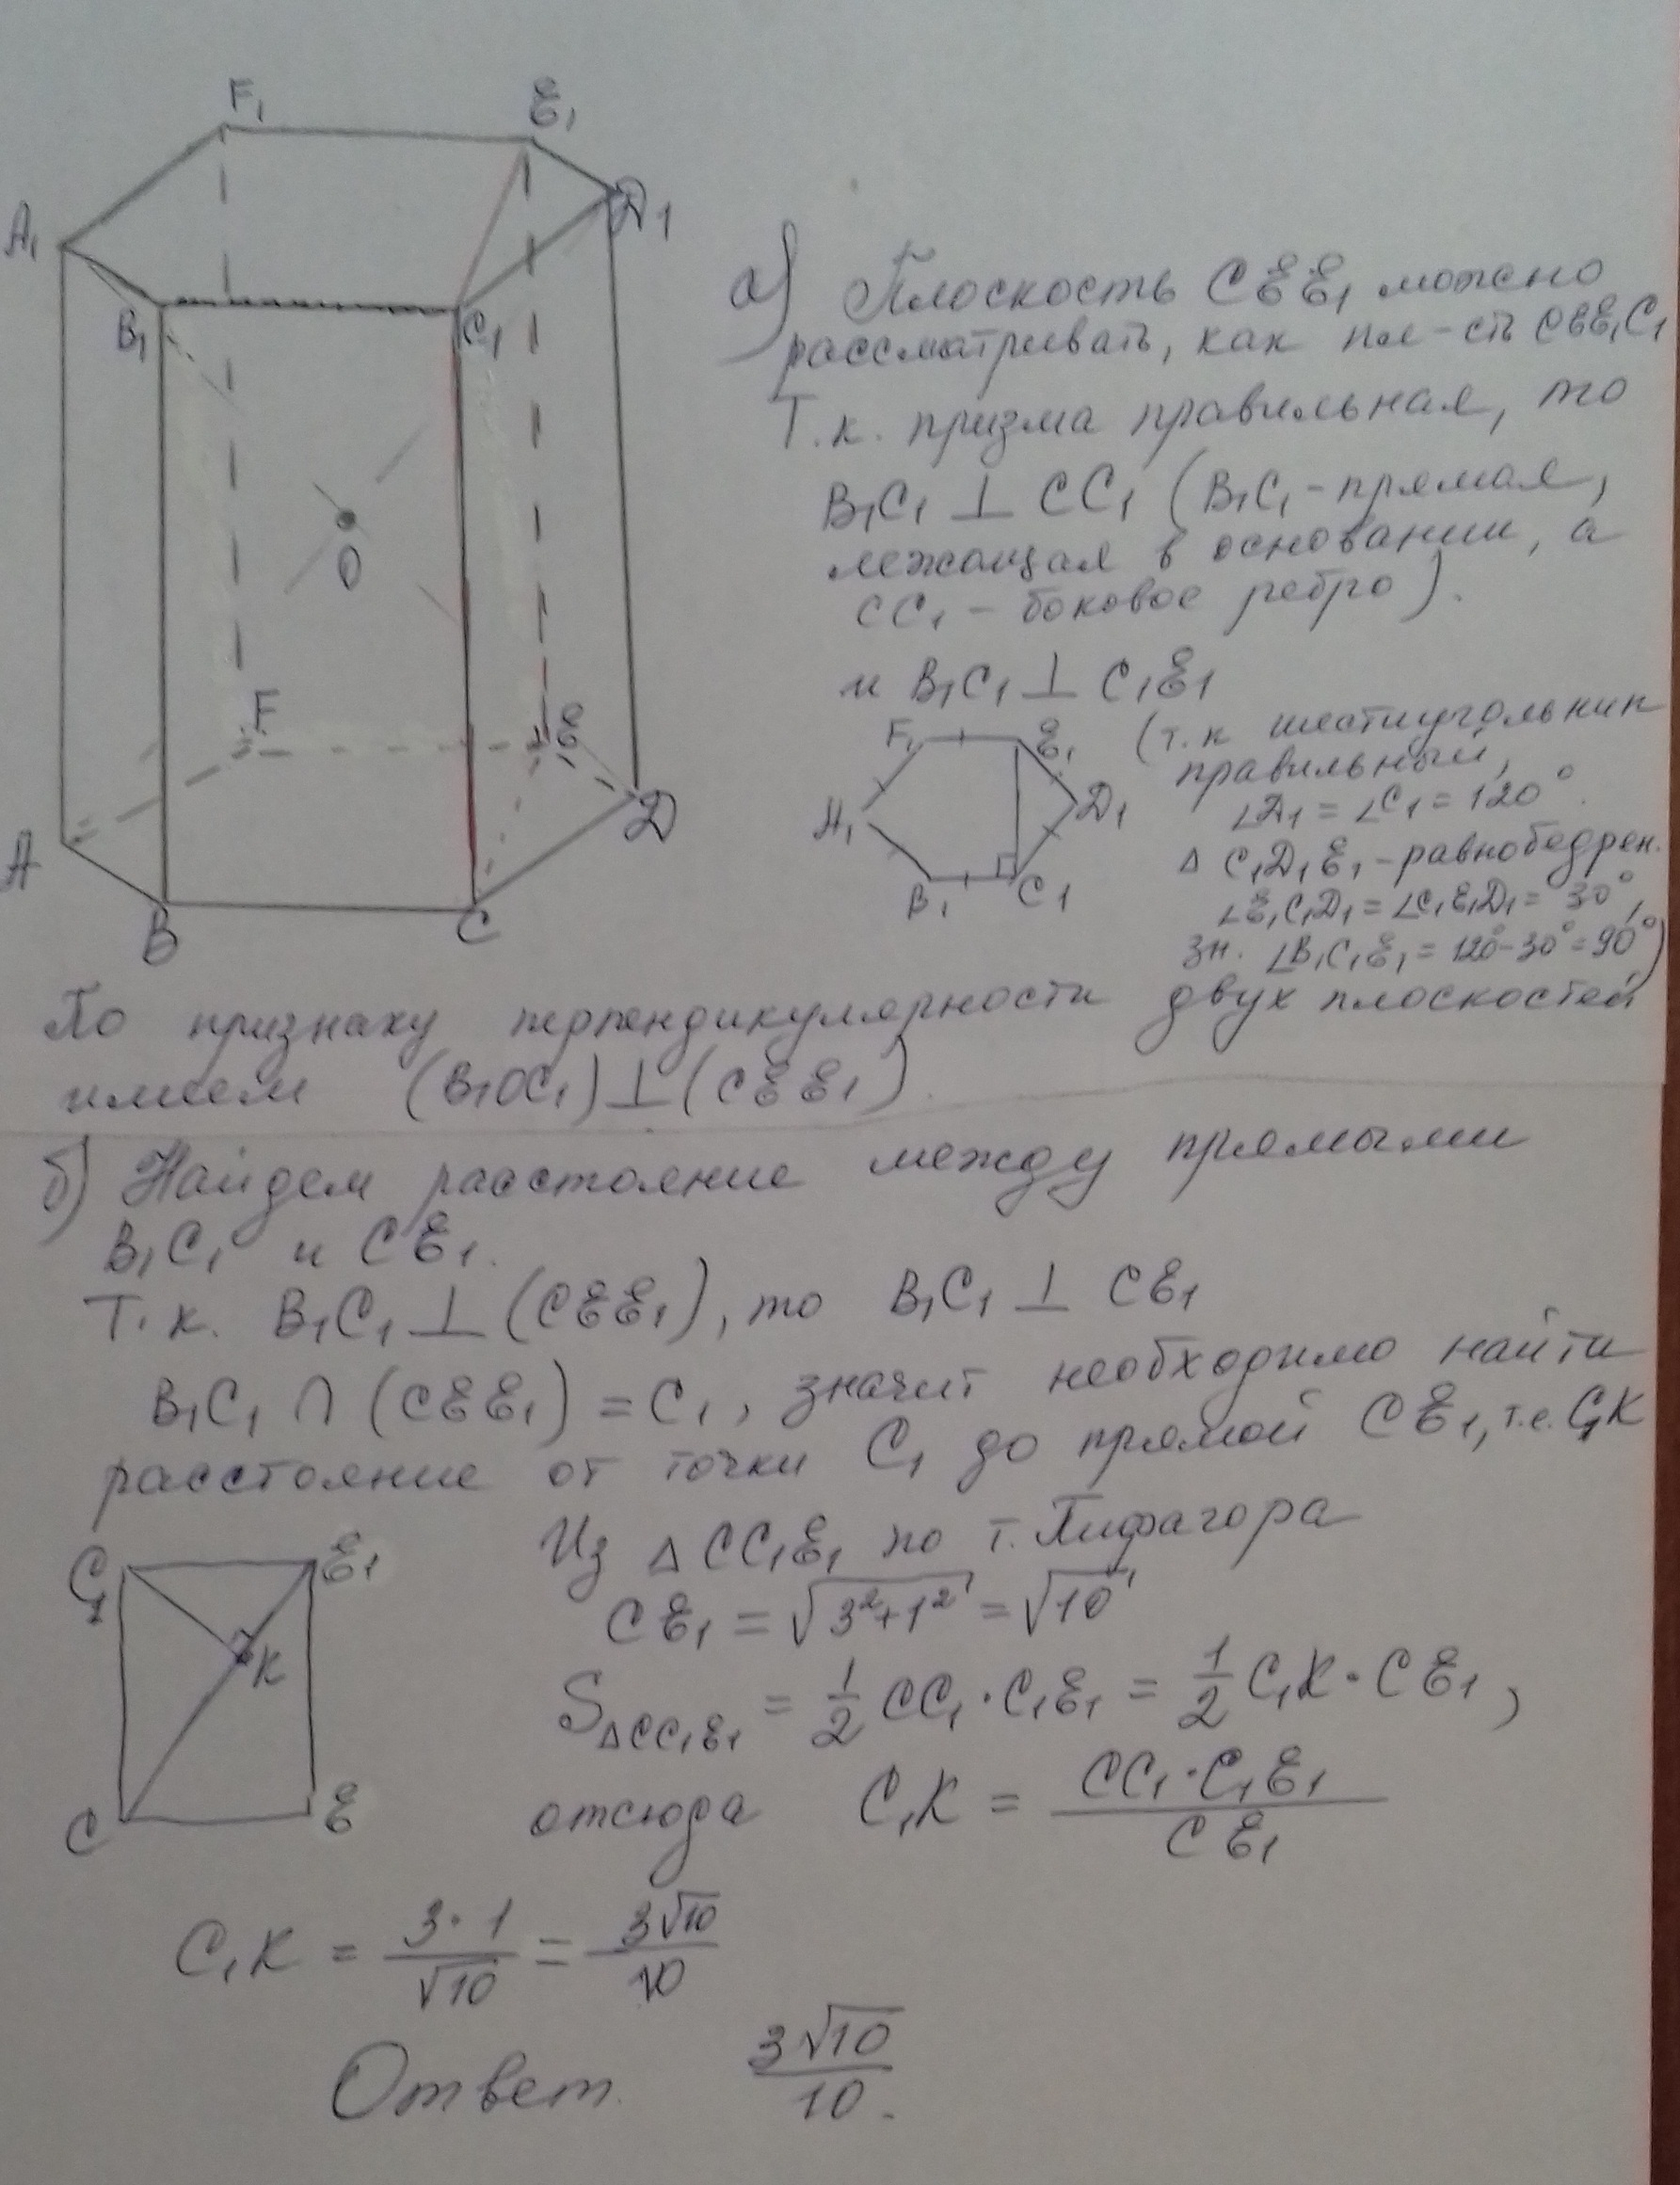 F₁
E₁
A₁
D₁
B₁
C₁
O
F
E
A
D
B
C
а) Плоскость CEE₁ можно
рассматривать, как пл-сть CEE₁C₁
Т.к. призма правильная, то
B₁C₁ ⊥ CC₁ (B₁C₁ - прямая,
лежащая в основании, а
CC₁ - боковое ребро).
и B₁C₁ ⊥ C₁E₁
F₁
E₁
A₁
D₁
B₁
C₁
(т.к шестиугольник
правильный,
∠D₁ = ∠C₁ = 120°.
Δ C₁D₁E₁ - равнобедрен.
∠E₁C₁D₁ = ∠C₁E₁D₁ = 30°,
зн. ∠B₁C₁E₁ = 120°-30° = 90°)
По признаку перпендикулярности двух плоскостей
имеем (B₁OC₁) ⊥ (CEE₁).
б) Найдем расстояние между прямыми
B₁C₁ и CE₁.
Т.к. B₁C₁ ⊥ (CEE₁), то B₁C₁ ⊥ CE₁
B₁C₁ ∩ (CEE₁) = C₁, значит необходимо найти
расстояние от точки C₁ до прямой CE₁, т.е. C₁K
C₁
E₁
K
C
E
Из Δ CC₁E₁ по т. Пифагора
CE₁ = √(3²+1²) = √10
S ΔCC₁E₁ = 1/2 CC₁ · C₁E₁ = 1/2 C₁K · CE₁,
отсюда C₁K = (CC₁ · C₁E₁)/(CE₁)
C₁K = (3 · 1)/√10 = 3√10/10
Ответ. 3√10/10.